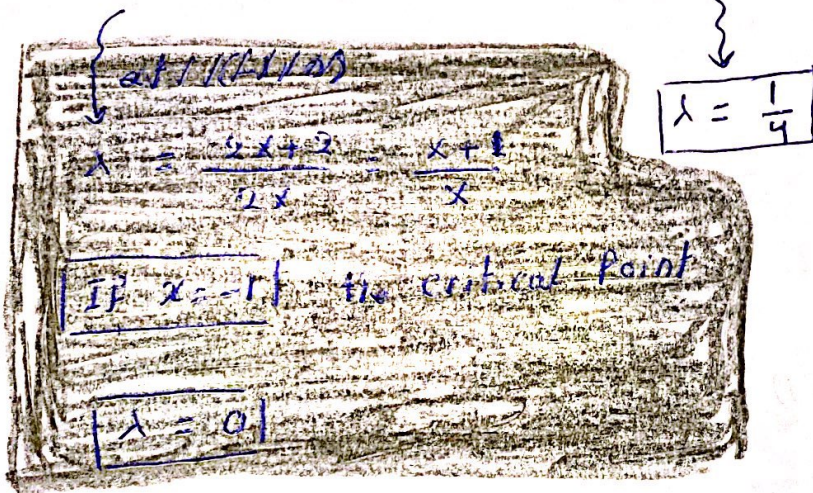 λ = 1/4
λ = 2x+2/2x = x+1/x
If x=-1 the critical point
λ = 0